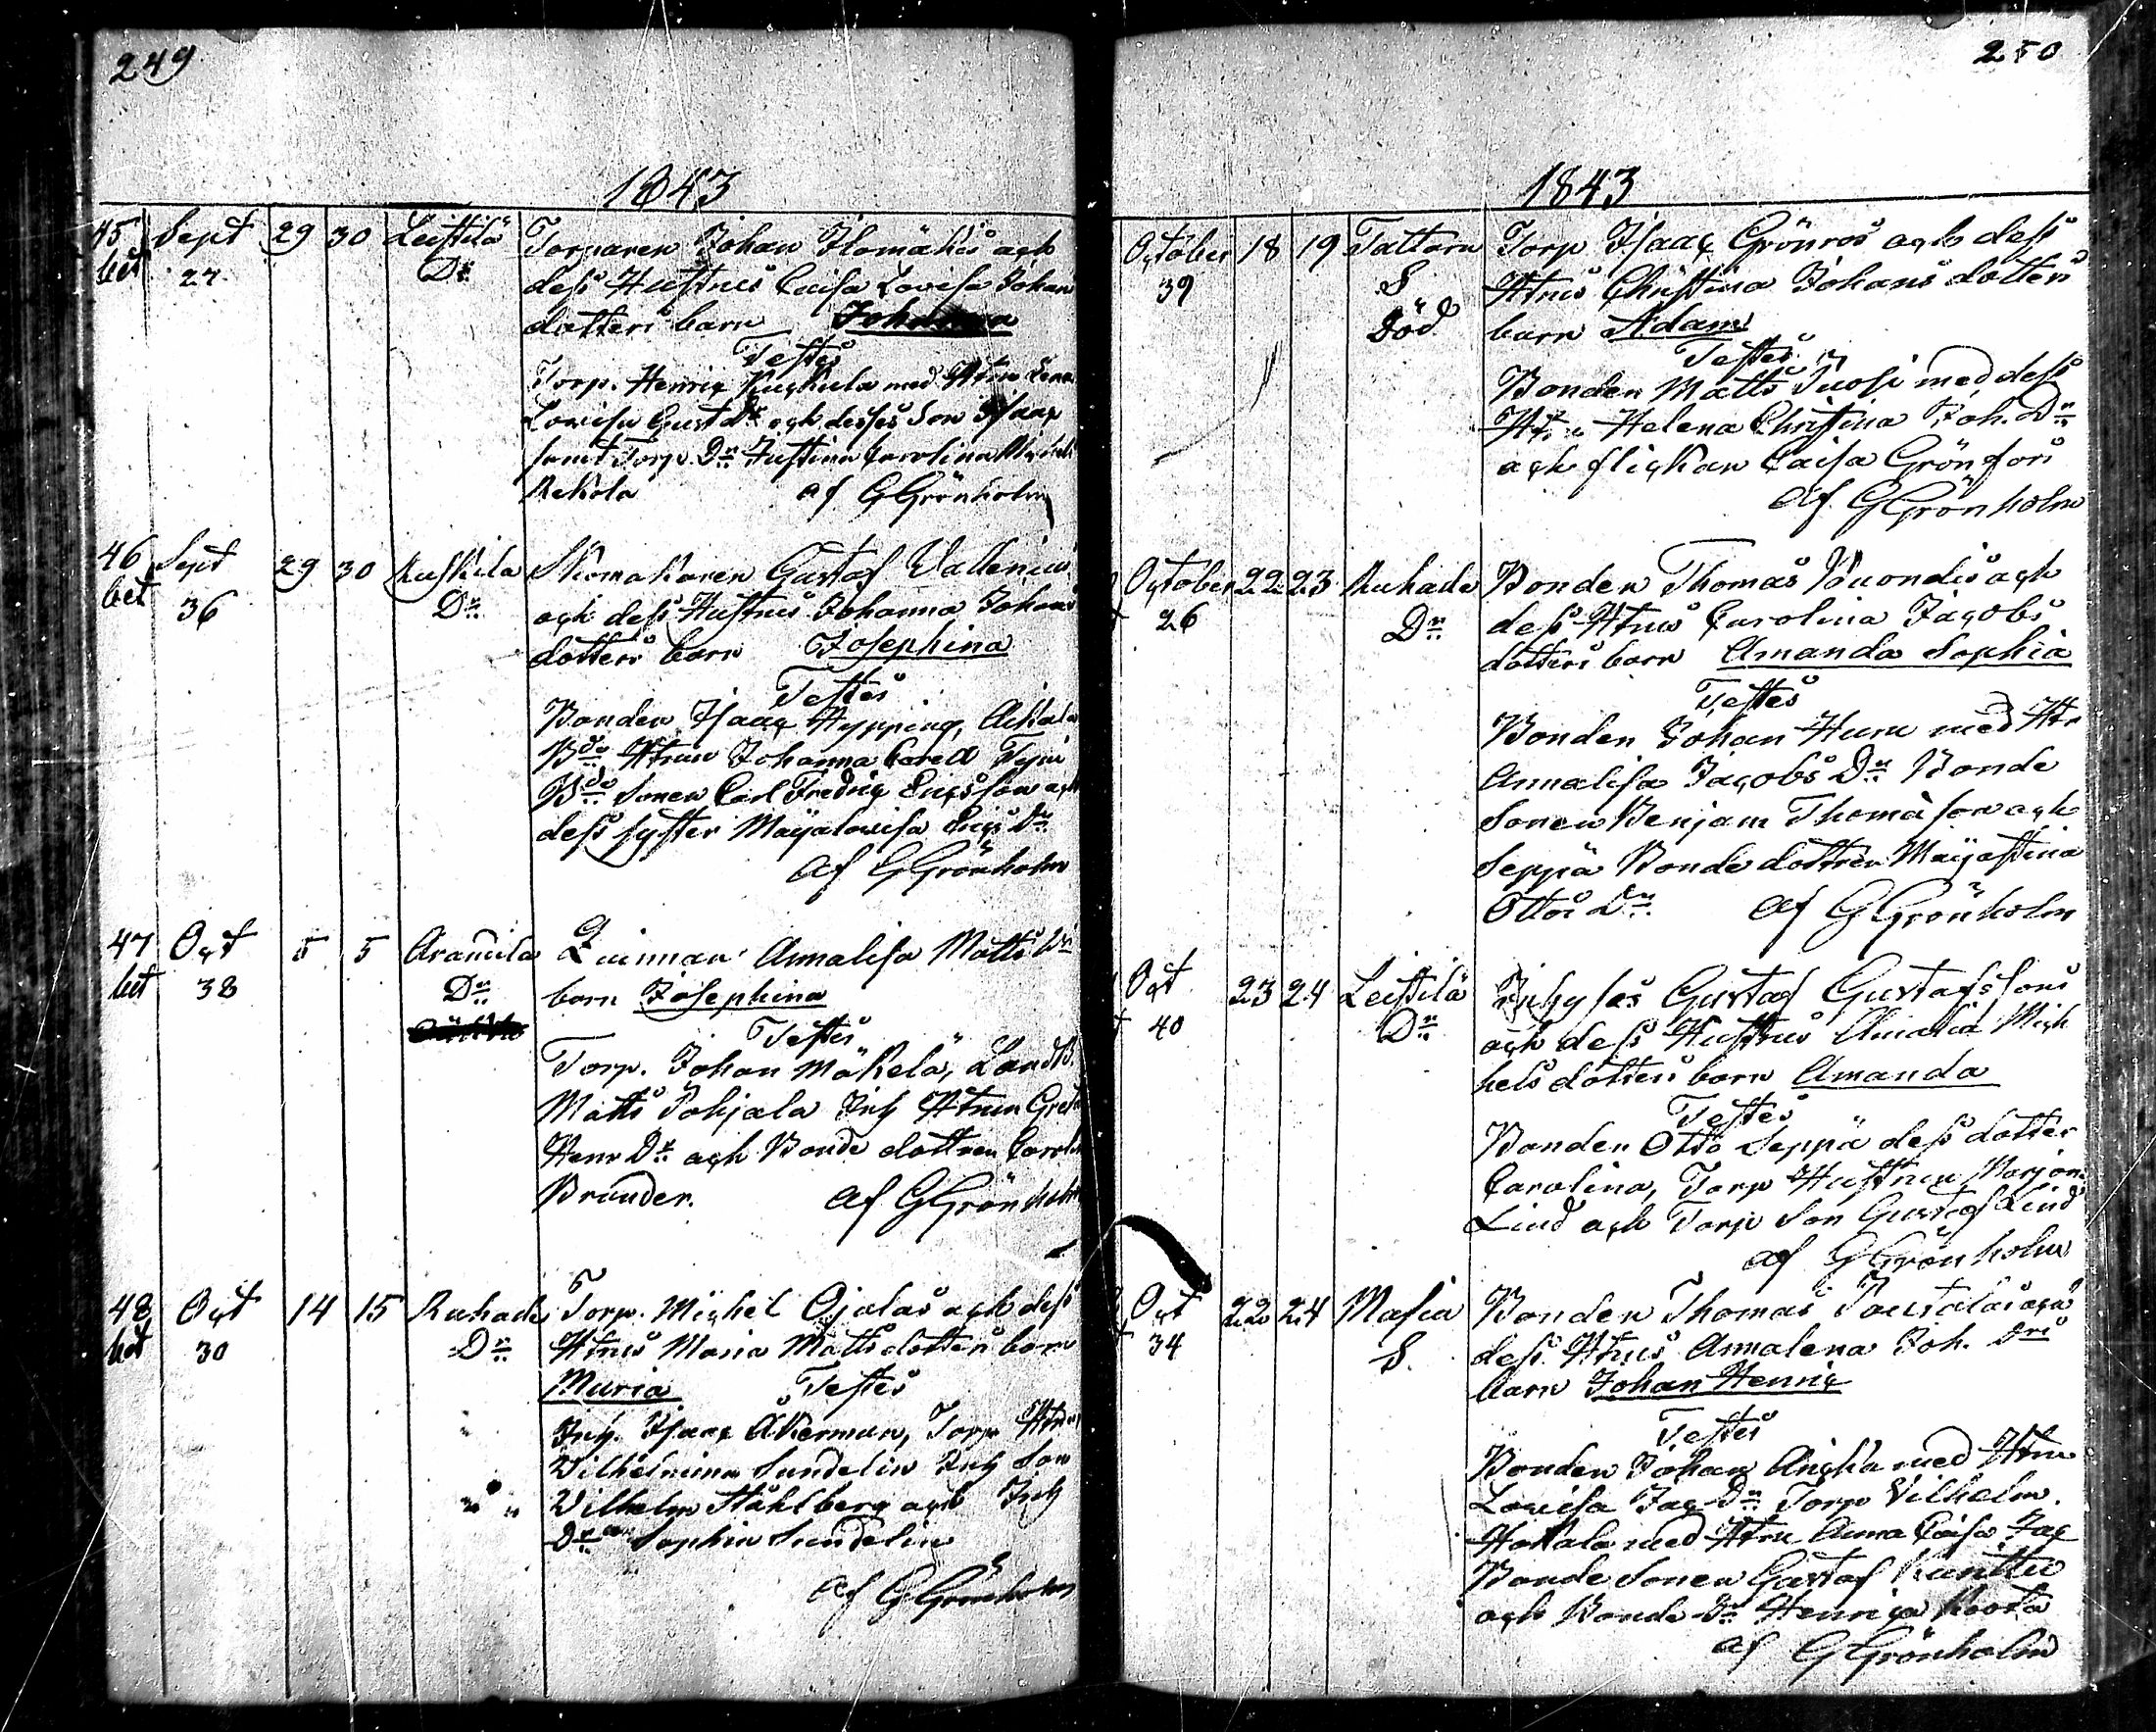 249
1843
45 Sept 29 30 Leistilä Torparen Johan Ilomäkis och
bet 24 Dr dess Hustrus Caisa Lovisa Johans
dotters barn Johanna
Testes
Torp. Henric med Htru Lena
Lovisa Gust Dr och desses Son Isaac
samt Torp. Dr Justina Carolina
Rekola af G Grönholm
46 Sept 29 30 Kuskila Skomakaren Gustaf Vallenius
bet 36 Dr och dess Hustrus Johanna Johans
dotters barn Josephina
Testes
Bonden Isaac Hypping, Ackala
Bde Htrun Johanna Carell
Bde Sonen Carl Fredric Ericsson och
dess syster Majalovisa Erics Dr
af G Grönholm
47 Oct 5 5 Arantila Qvinnan Annalisa Matts Dr
bet 38 Dr barn Josephina
Testes
Torp. Johan Mäkelä, Landb.
Matts Pohjala Inh Htrun Greta
Henr Dr och Bonde dottren Carolin
Brander. af G Grönholm
48 Oct 14 15 Ruhade Torp. Michel Ojalas och dess
bet 30 Dr Htrus Maria Mattsdotters barn
Maria Testes
Inh. Isaac Åkerman, Torp Htrun
Vilhelmina Sundelin Inh Son
Vilhelm Ståhlberg och Inh
Dr Sophia Sundelin
af G Grönholm
250
1843
October 18 19 Tattara Torp Isaac Grönros och dess
39 S Htrus Christina Johans dotters
Död barn Adam
Testes
Bonden Matts Tuosi med dess
Htru Helena Christina Joh. Dr
och flickan Caisa Grönfors
af G Grönholm
October 22 23 Ruhade Bonden Thomas och
26 Dr dess Htrus Carolina Jacobs
dotters barn Amanda Sophia
Testes
Bonden Johan Huru med Htr
Annalisa Jacobs Dr Bonde
Sonen Benjam Thomasson och
Seppä Bonde dottren Majastina
Ottos Dr af G Grönholm
Oct 23 24 Leistilä Inhyses Gustaf Gustafssons
40 Dr och dess Hustrus Amalia Mich
hels dotters barn Amanda
Testes
Bonden Otto Seppä dess dotter
Carolina, Torp Hustrun Marjana
Lind och Torp Son Gustaf Lind
af G Grönholm
Oct 22 24 Masia Bonden Thomas Poutalas och
34 S. dess Htrus Annalena Joh. Drs
barn Johan Henric
Testes
Bonden Johan Ancka med Htru
Lovisa Jac Dr Torp Vilhelm
Hakala med Htru Anna Caisa Jac
Bonde Sonen Gustaf Kunttu
och Bonde Dr Henrica Roota
af G Grönholm